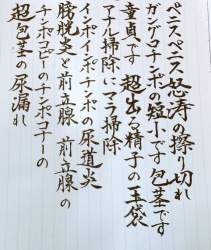 ペニスペニス 怒涛の擦り切れ
ガンゲロチンポの短小です 包茎です
童貞です 超出る精子の玉袋
アナル掃除にママ掃除
インポインポチンポの尿道炎
膀胱炎と前立腺 前立腺の
チンポコピーのチンポコナーの
超包茎の尿漏れ